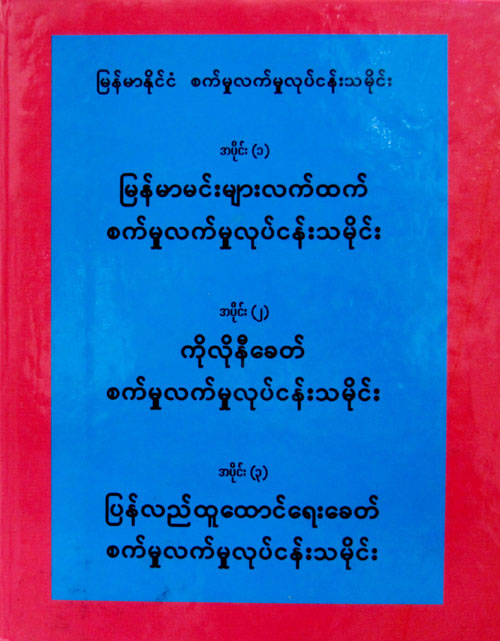 မြန်မာနိုင်ငံ စက်မှုလက်မှုလုပ်ငန်းသမိုင်း
အပိုင်း (၁)
မြန်မာမင်းများလက်ထက်
စက်မှုလက်မှုလုပ်ငန်းသမိုင်း
အပိုင်း (၂)
ကိုလိုနီခေတ်
စက်မှုလက်မှုလုပ်ငန်းသမိုင်း
အပိုင်း (၃)
ပြန်လည်ထူထောင်ရေးခေတ်
စက်မှုလက်မှုလုပ်ငန်းသမိုင်း